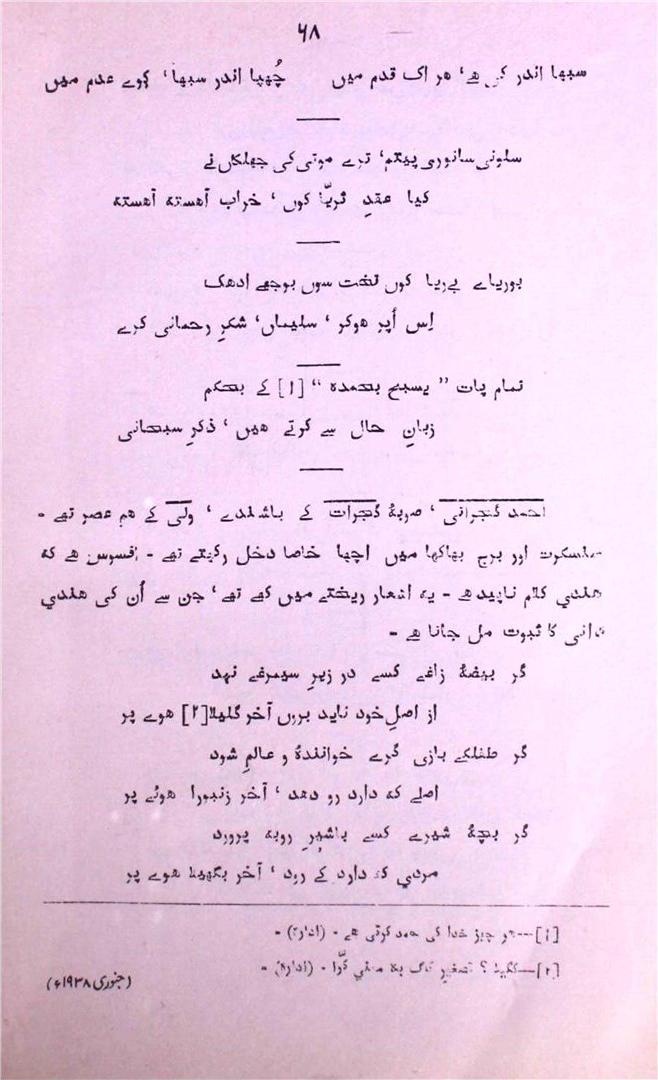 ۶۸
سبھا اندر کی ھے، ھر اک قدم میں چُھپا اندر سبھا، کوے عدم میں
سلونی سانوری پیتم، ترے موتی کی جھلکاں نے
کیا عقدِ ثریّا کوں، خراب آھستہ آھستہ
بوریاے بےریا کوں تخت سوں بوجھے ادھک
اِس اُپر ھوکر، سلیماں، شکرِ رحمانی کرے
تمام پات ”یسبح بحمدہ“ [۱] کے بحکم
زبانِ حال سے کرتے ھیں، ذکرِ سبحانی
احمد گجراتی، صوبۂ گجرات کے باشندے، ولی کے ھم عصر تھے ۔
سنسکرت اور برج بھاکھا میں اچھا خاصا دخل رکھتے تھے ۔ افسوس ھے کہ
ھندی کلام ناپید ھے ۔ یہ اشعار ریختے میں کہے تھے، جن سے اُن کی ھندی
دانی کا ثبوت مل جاتا ھے ۔
گر بیضۂ زاغے کسے در زیرِ سیمرغے نہد
از اصلِ خود ناید بروں آخر گلیلا[۲] ھوے پر
گر طفلکے بازی گرے خوانندۂ و عالم شود
اصلے کہ دارد رو دھد، آخر زنبورا ھوئے پر
گر بچۂ شیرے کسے باشیرِ روبہ پرورد
مردی کہ دارد کے رود، آخر بگھیلا ھوے پر
[۱]—ھر چیز خدا کی حمد کرتی ھے ۔ (ادارہ) ۔
[۲]— ؟ تصغیرِ بہ معنی کوّا ۔ (ادارہ) ۔
(جنوری ۱۹۳۸ء)